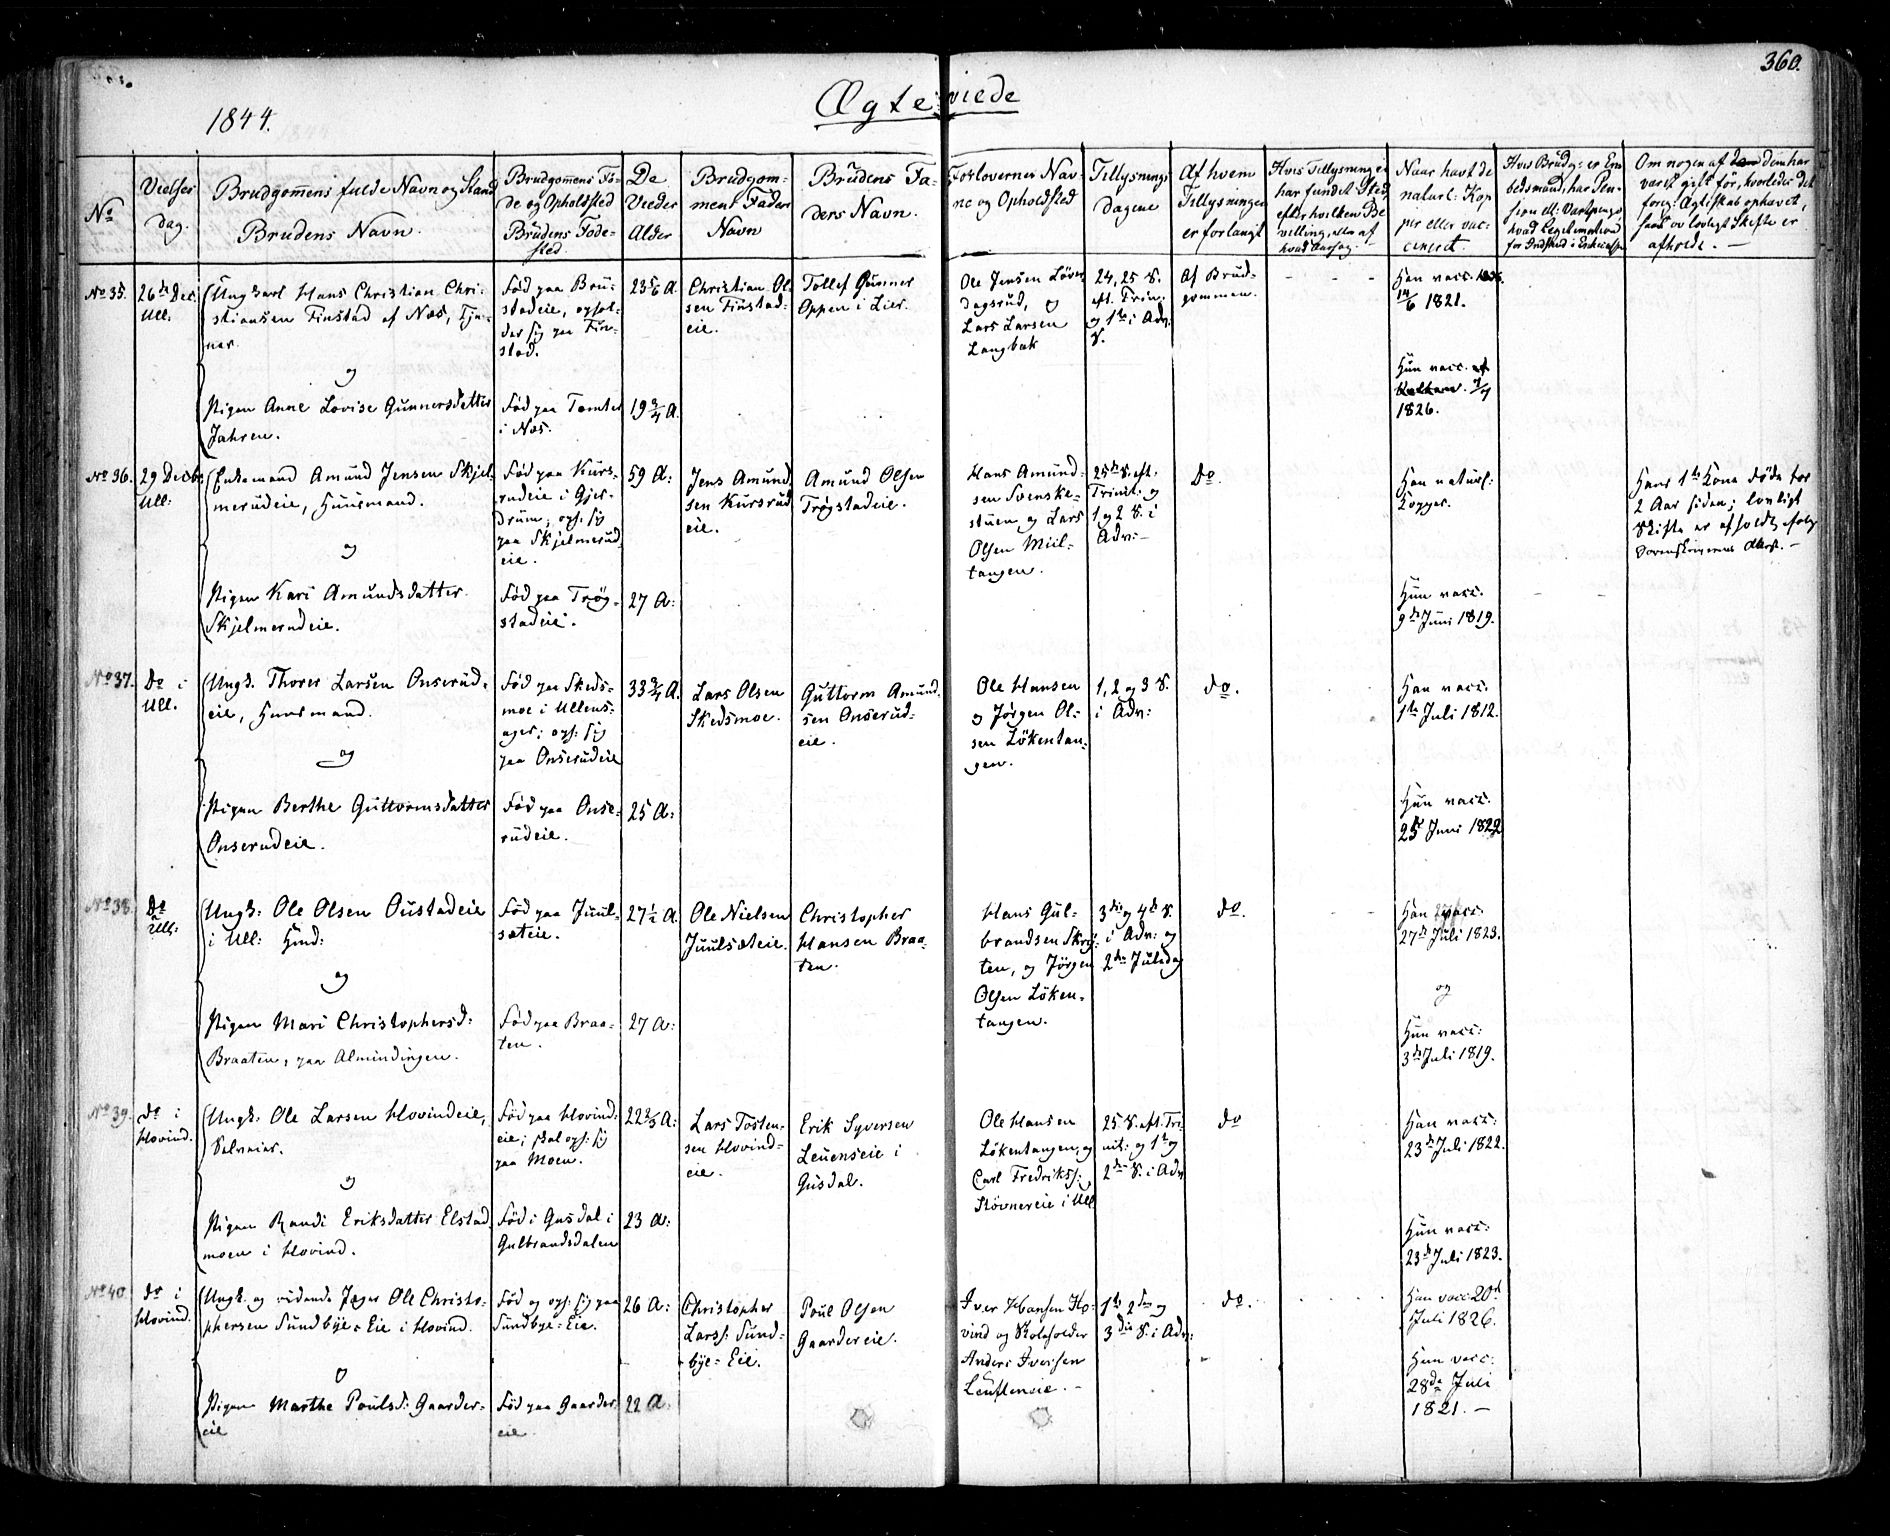 360.
1844.
Ægteviede
No
Vielses
dag.
Brudgomens fulde Navn og Stand
Brudens Navn.
Brudgomens Fø-
de og Opholdsted
Brudens Føde-
sted.
De
Vieder
Alder
Brudgom-
mens Faders
Navn
Brudens Fa-
ders Navn.
Forlovernes Nav-
ne og Opholdsted
Tillysnings
dagene
Af hvem
Tillysningen
er forlangt
Hvis Tillysning ei
har fundet Sted,
efter hvilken Be
villing eller af
hvad Aarsag.
Naar havt de
naturl: Kop
per eller vac-
cineret.
Hvis Brudg: er Em
bedsmand, har Pen-
sion ell: Vartpenge
hvad Legitimation
for Indskud i Enkecasse
Om nogen af dem har
været gift før, hvorledes det
foreg: Ægteskab ophævet,
samt ov lovligt Skifte er
afholdt. —
No 35.
26de Dec.
Ull:
Ungkarl Hans Christian Chri-
stiansen Finstad af Næs, Tje-
ner.
og
Pigen Anne Lovise Gunnersdatter
Jahren.
Fød paa Bru-
stadeie, ophol-
der sig paa Fin-
stad.
Fød paa Tomter
i Næs.
23 5/6 A.
19 3/4 A.
Christian Ol
sen Finstad-
eie.
Tollef Gunner
Oppen i Lier.
Ole Jensen Løver
dagsrud, og
Lars Larsen
Langbak
24, 25 S.
eft. Trin.
og 1ste i Adv.
S.
Af Brud-
gommen.
Han vacc.
14/6 1821.
Hun vacc.
7/7
1826.
No 36.
29 Decbr
Ull:
Enkemand Amund Jensen Skjel-
merudeie, Huusmand.
og
Pigen Kari Amundsdatter
Skjelmerudeie.
Fød paa Kurs-
rudeie i Gjer-
drum, oph: sig
paa Skjelmerud
eie.
Fød paa Trøg-
stadeie.
59 A:
27 A:
Jens Amund
sen Kursrud
eie.
Amund Olsen
Trøgstadeie.
Hans Amund-
sen Svenske-
stuen og Lars
Olsen Miil-
tangen.
25de S. eft.
Trinit: og
1 og 2 S. i
Adv: —
Do.
Han naturl:
Kopper.
Hun vacc.
9de Juni 1819.
Hans 1ste Kona døde for
2 Aar siden; lovligt
Skifte er afholdt ifølge
Sorenskriverens Attest. —
No 37.
Do i
Ull.
Ungk. Thorer Larsen Onserud-
eie, Huusmand.
og
Pigen Berthe Guttormsdatter
Onserudeie.
Fød paa Skeds-
moe i Ullens-
ager; oph: sig
paa Onserudeie
Fød paa Onse-
rudeie.
33 3/4 A.
25 A:
Lars Olsen
Skedsmoe.
Guttorm Amund
sen Onserud-
eie.
Ole Hansen
og Jørgen Ol-
sen Løkentan-
gen.
1, 2 og 3 S.
i Adv:
do.
Han vacc.
1ste Juli 1812.
Hun vacc.
25de Juni 1822
No 38.
Do
Ull:
Ungk: Ole Olsen Oustadeie
i Ull: Hmd:
og
Pigen Mari Christophersd:
Braaten, paa Almindingen.
Fød paa Juul-
sæteie.
Fød paa Braa-
ten.
27 1/2 A
27 A:
Ole Nielsen
Juulsæteie.
Christopher
Hansen Braa-
ten.
Hans Gul-
brandsen Skry-
ten, og Jørgen
Olsen Løken-
tangen.
3die og 4de S.
i Adv: og
2den Juledag
do.
Han vacc.
27de Juli 1823.
og
Hun vacc:
3de Juli 1819.
No 39.
do i
Hovind.
Ungk: Ole Larsen Hovindeie,
Selveier.
og
Pigen Randi Eriksdatter Elstad
moen i Hovind.
Fød paa Hovind-
eie; skal oph: sig
paa Moen.
Fød i Gusdal i
Gulbrandsdalen
22 2/3 A:
23 A:
Lars Tosten-
sen Hovind-
eie.
Erik Syversen
Leuenseie i
Gusdal.
Ole Hansen
Løkentangen, og
Carl Fredriks:
Støvnereie i Ull
25 S. eft. Tri-
nit: og 1ste og
2den S. i Adv
do
Han vacc:
23de Juli 1822.
Hun vacc:
23de Juli 1823.
No 40
do i
Hovind.
Ungk. og vidende Jæger Ole Christo-
phersen Sundbye-Eie i Hovind.
og
Pigen Marthe Poulsd: Gaarder-
eie
Fød og oph: sig paa
Sundbye-Eie.
Fød paa Gaarder-
eie.
26 A:
22 A:
Christopher
Larss: Sund-
bye-Eie.
Poul Olsen
Gaardereie.
Iver Hansen Ho-
vind og Skoleholder
Anders Iversen
Leufteneie. -
1ste 2den og
3die S. i Adv:
do.
Han vacc: 20de
Juli 1826.
Hun vacc:
28de Juli
1821. —